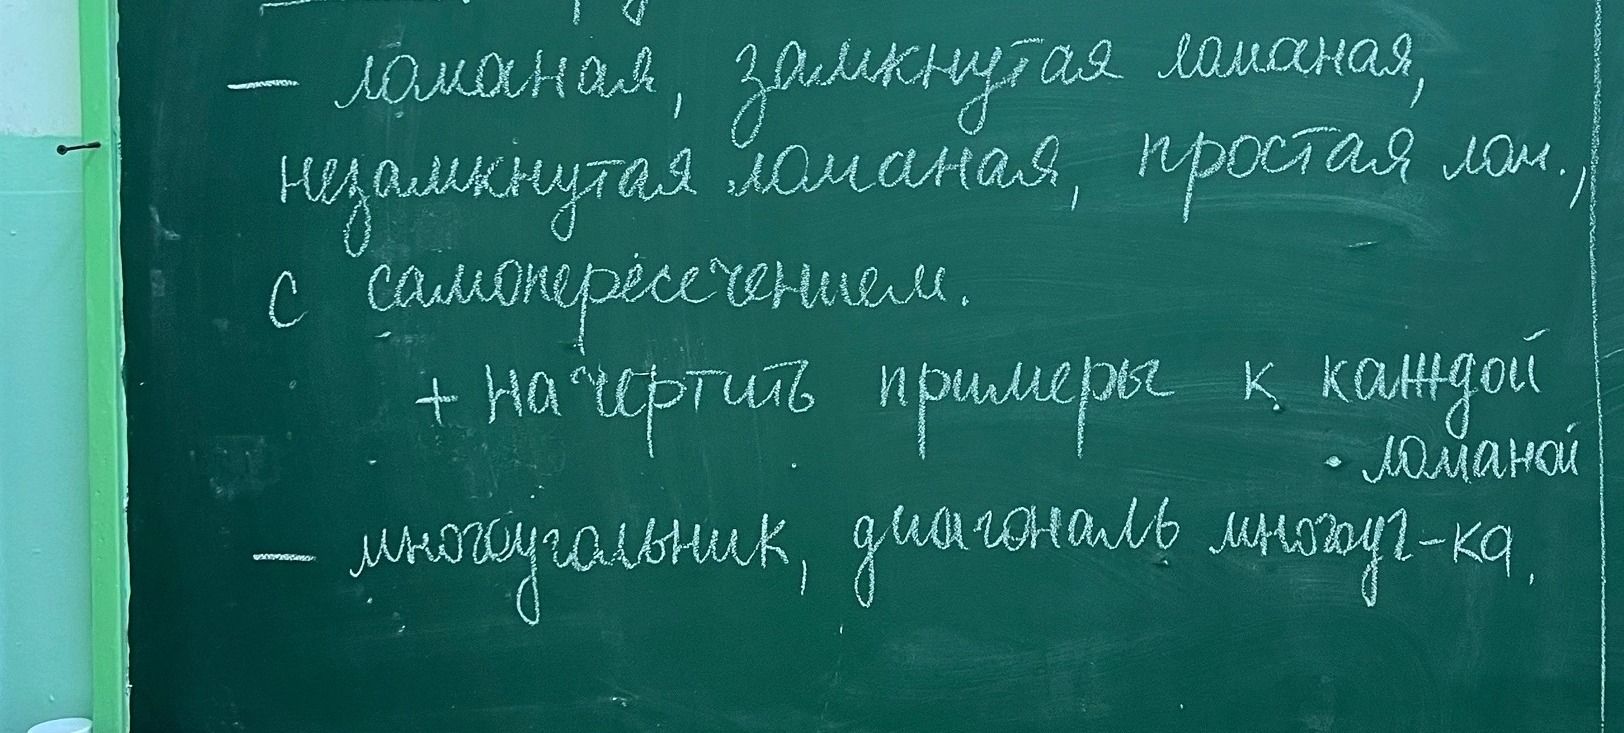 — ломаная, замкнутая ломаная,
незамкнутая ломаная, простая лом.,
с самопересечением.
+ начертить примеры к каждой
ломаной
— многоугольник, диагональ многоуг-ка.